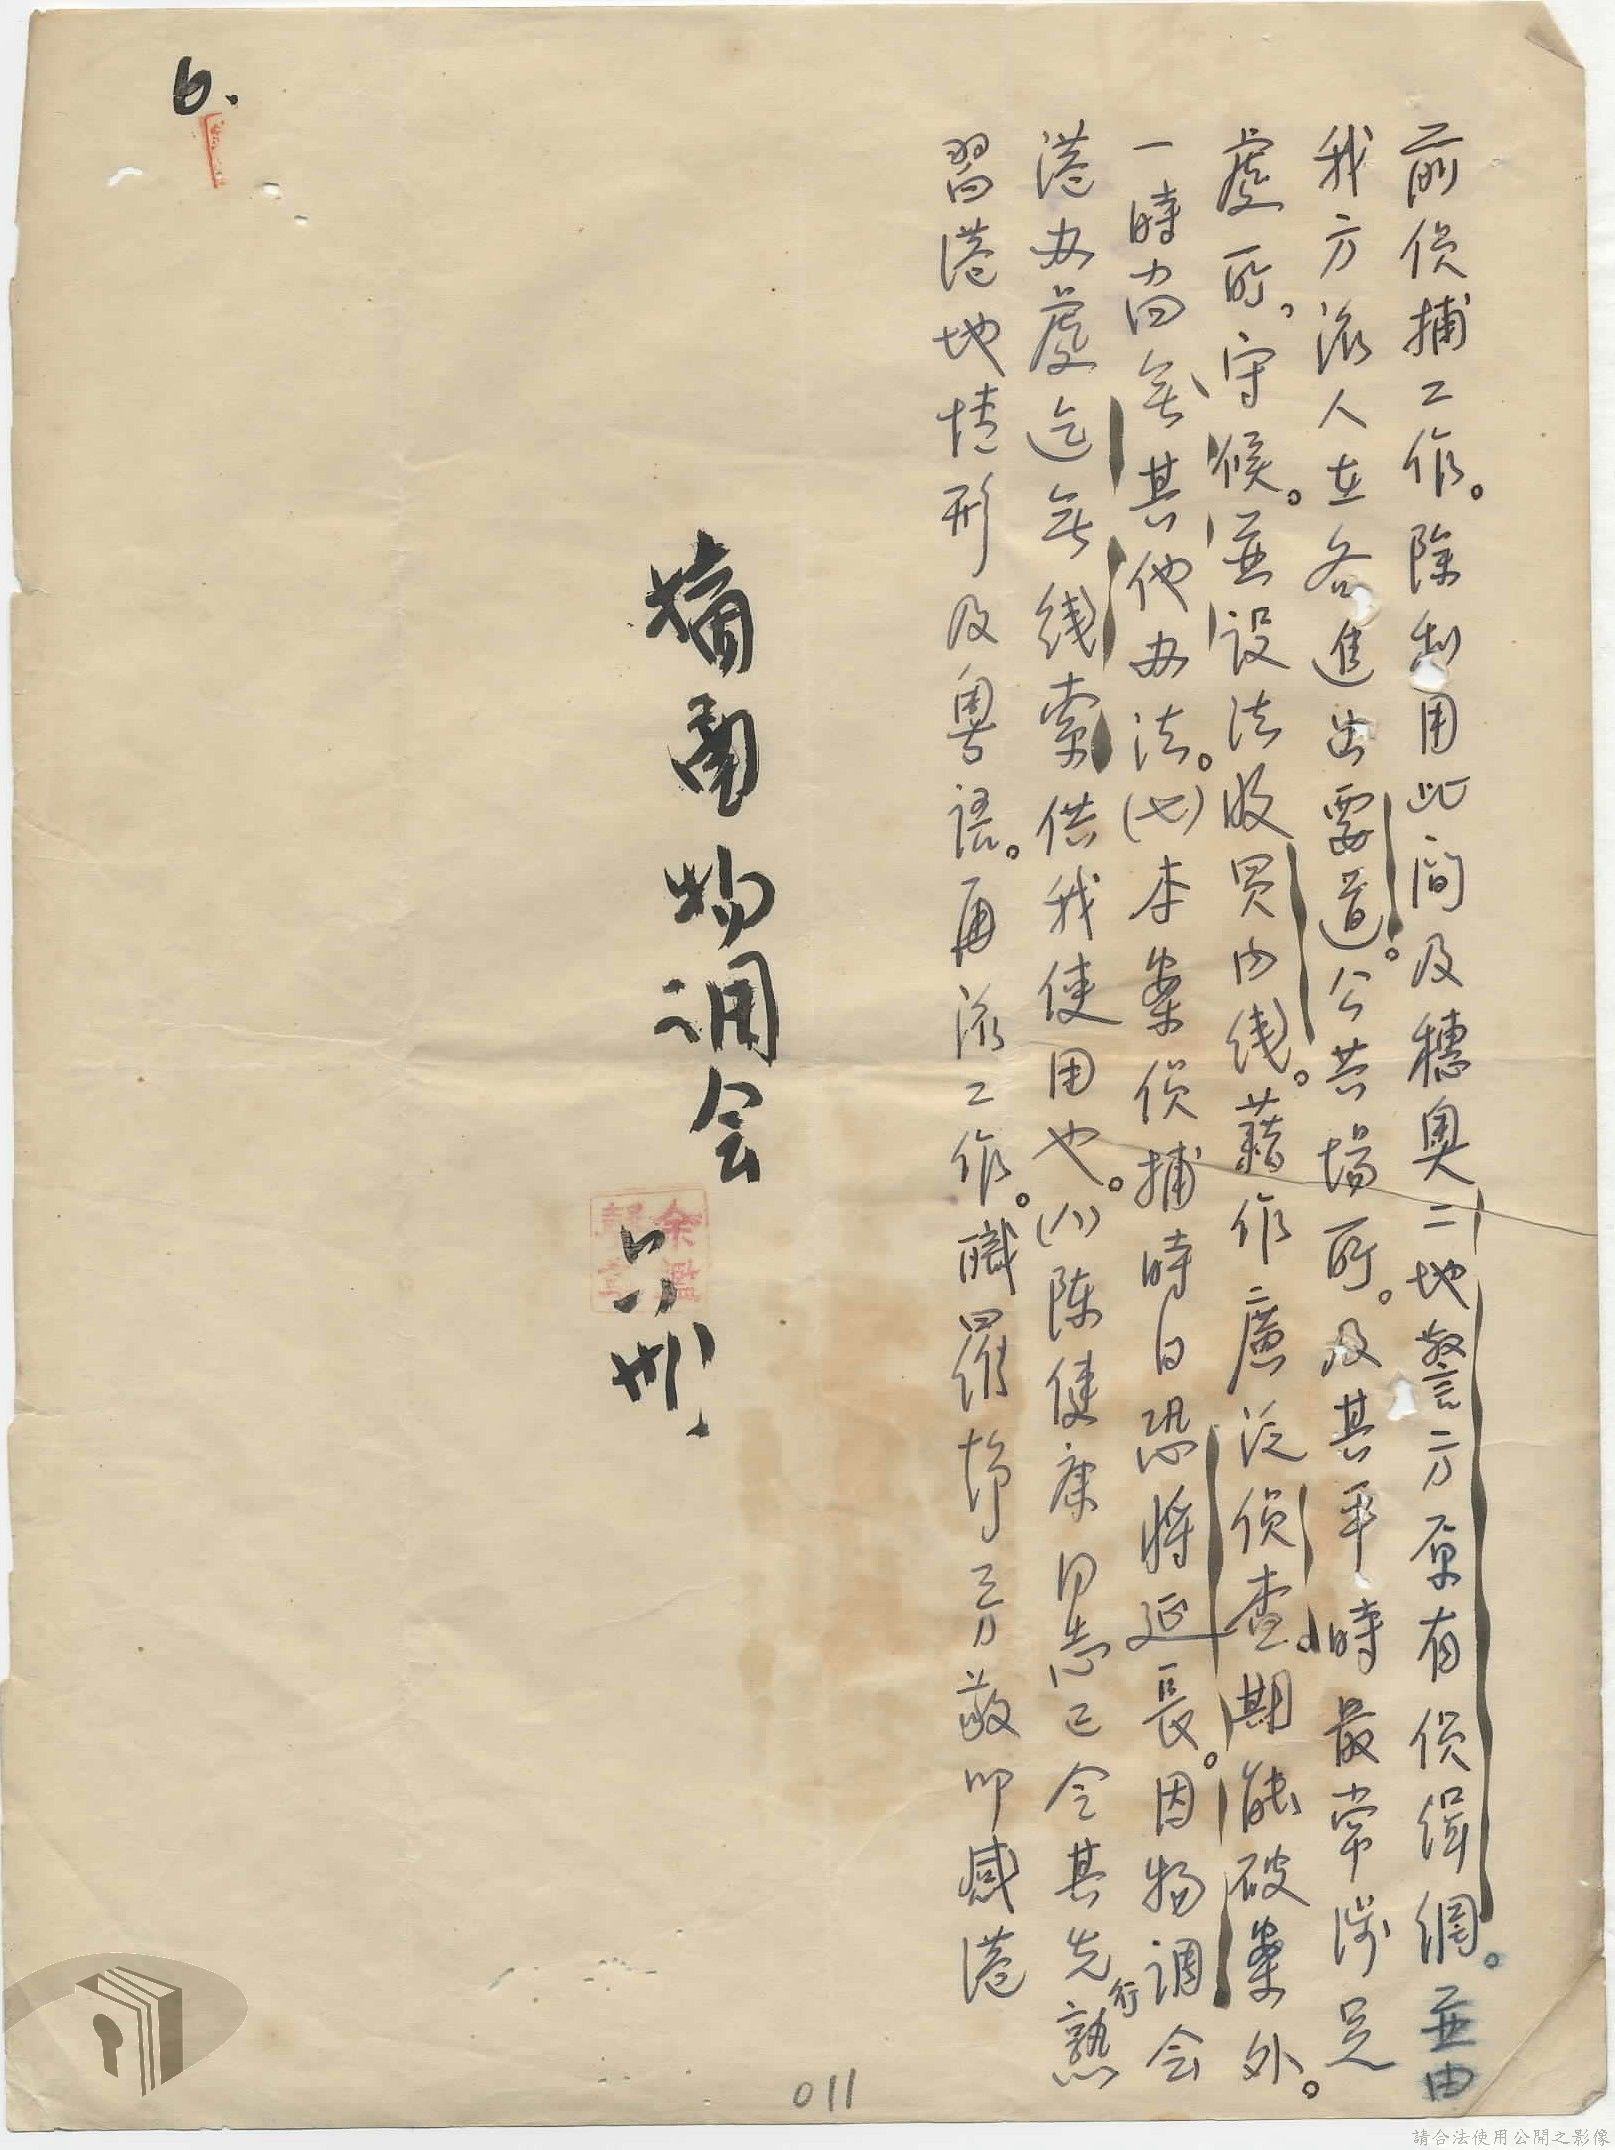 前偵捕工作。除利用此间及穗奥二地警方原有偵緝網。並由
我方派人在各進出要道。公共場所。及其平時最常涉足
處所，守候。並设法收買内线。藉作廣泛偵查，期能破案外。
一時尚無其他办法。(七)本案偵捕時日恐將延長。因物调会
港办處迄無线索供我使用也。(八)陈健康同志已令其先行熟
習港地情形及粤语。再派工作。職羅 三 敬叩感港
摘圉物调会
六 卅
余鑑聲章
6.
011
請合法使用公開之影像